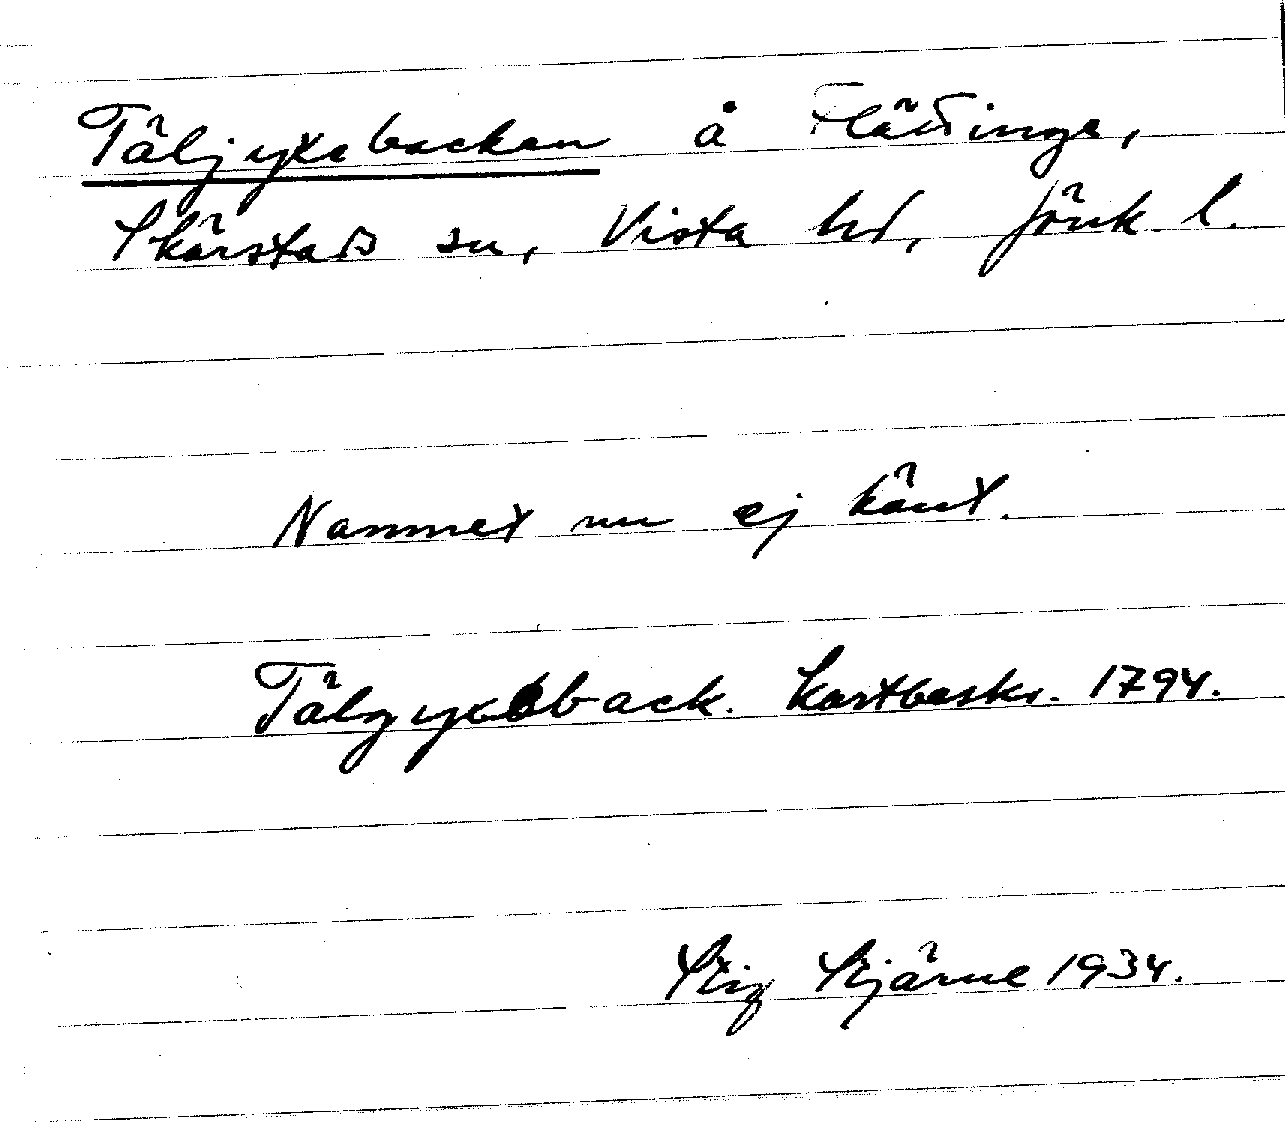 Täljyxebacken å Flättinge,
Skärstads sn, Vista hd, Jönk. l.
Namnet nu ej känt.
Tälgyxebback. Kartbeskr. 1794.
Stig Stjärne 1934.